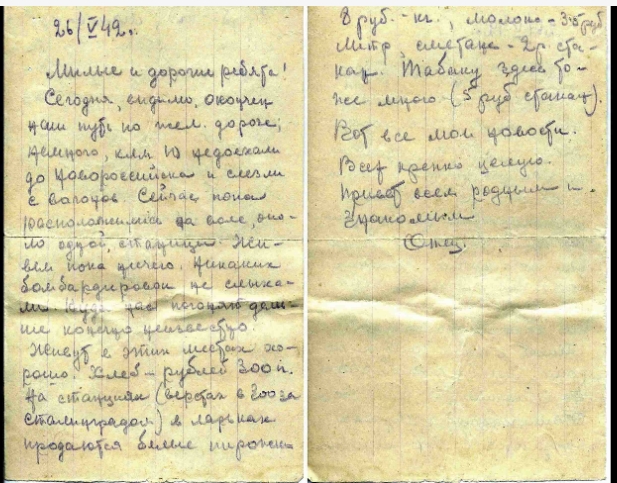 26/V 42 г.
Милые и дорогие ребята!
Сегодня, видимо, окончен
наш путь по жел. дороге,
немного, клм 10 недоехали
до Новороссийска и слезли
с вагонов. Сейчас пока
расположились на поле, око-
ло одной, станицы. Жи-
вем пока ничего. Никаких
бомбардировок не слыха-
ли. Куда нас погонят даль-
ше конечно неизвестно.
Живут в этих местах хо-
рошо. Хлеб - рублей 300 п.
На станциях (верстах в 200 за
Сталинградом) в ларьках
продаются белые пирожки
8 руб. - кг., молоко - 35 руб
литр, сметана - 2 р. ста-
кан. Табаку здесь то-
же много (5 руб стакан).
Вот все мои новости.
Всех крепко целую.
Привет всем родным и
знакомым
Отец.